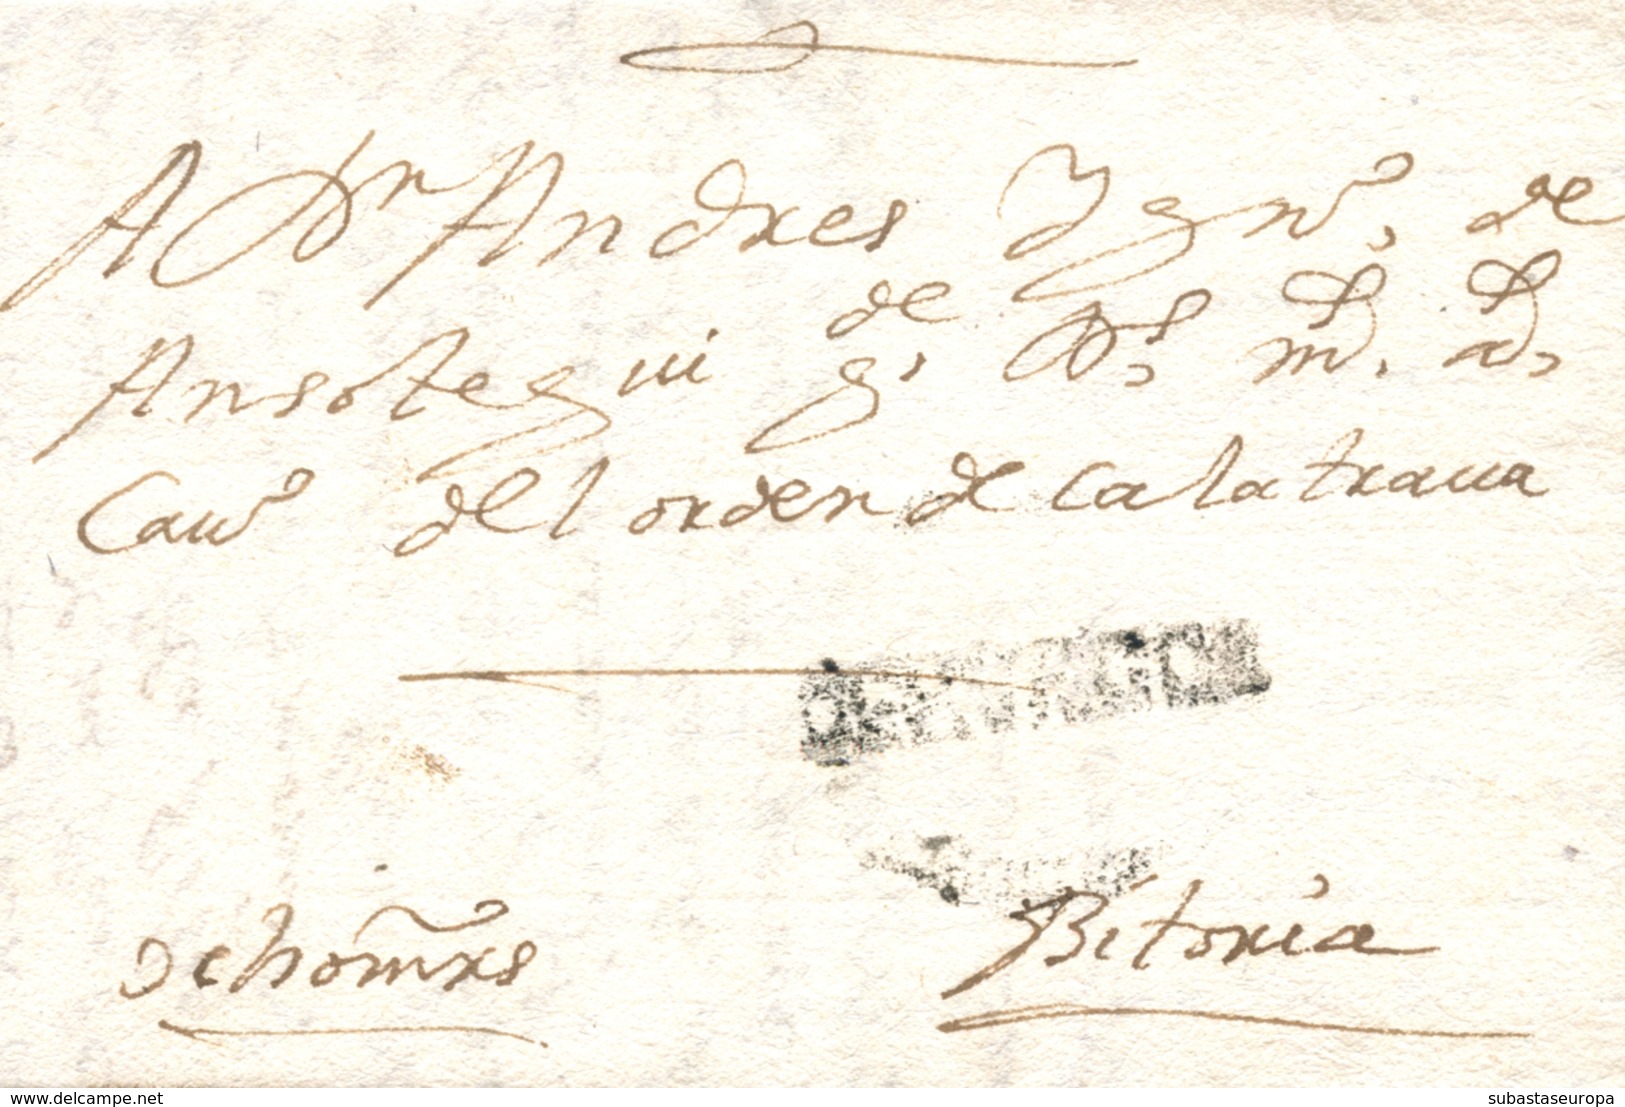 A Dn Andres Ygno. de
Ansotegui gde. Ds. md. ad.
Cauo del orden de calatraua
Bitoria
www.delcampe.net
subastaseuropa